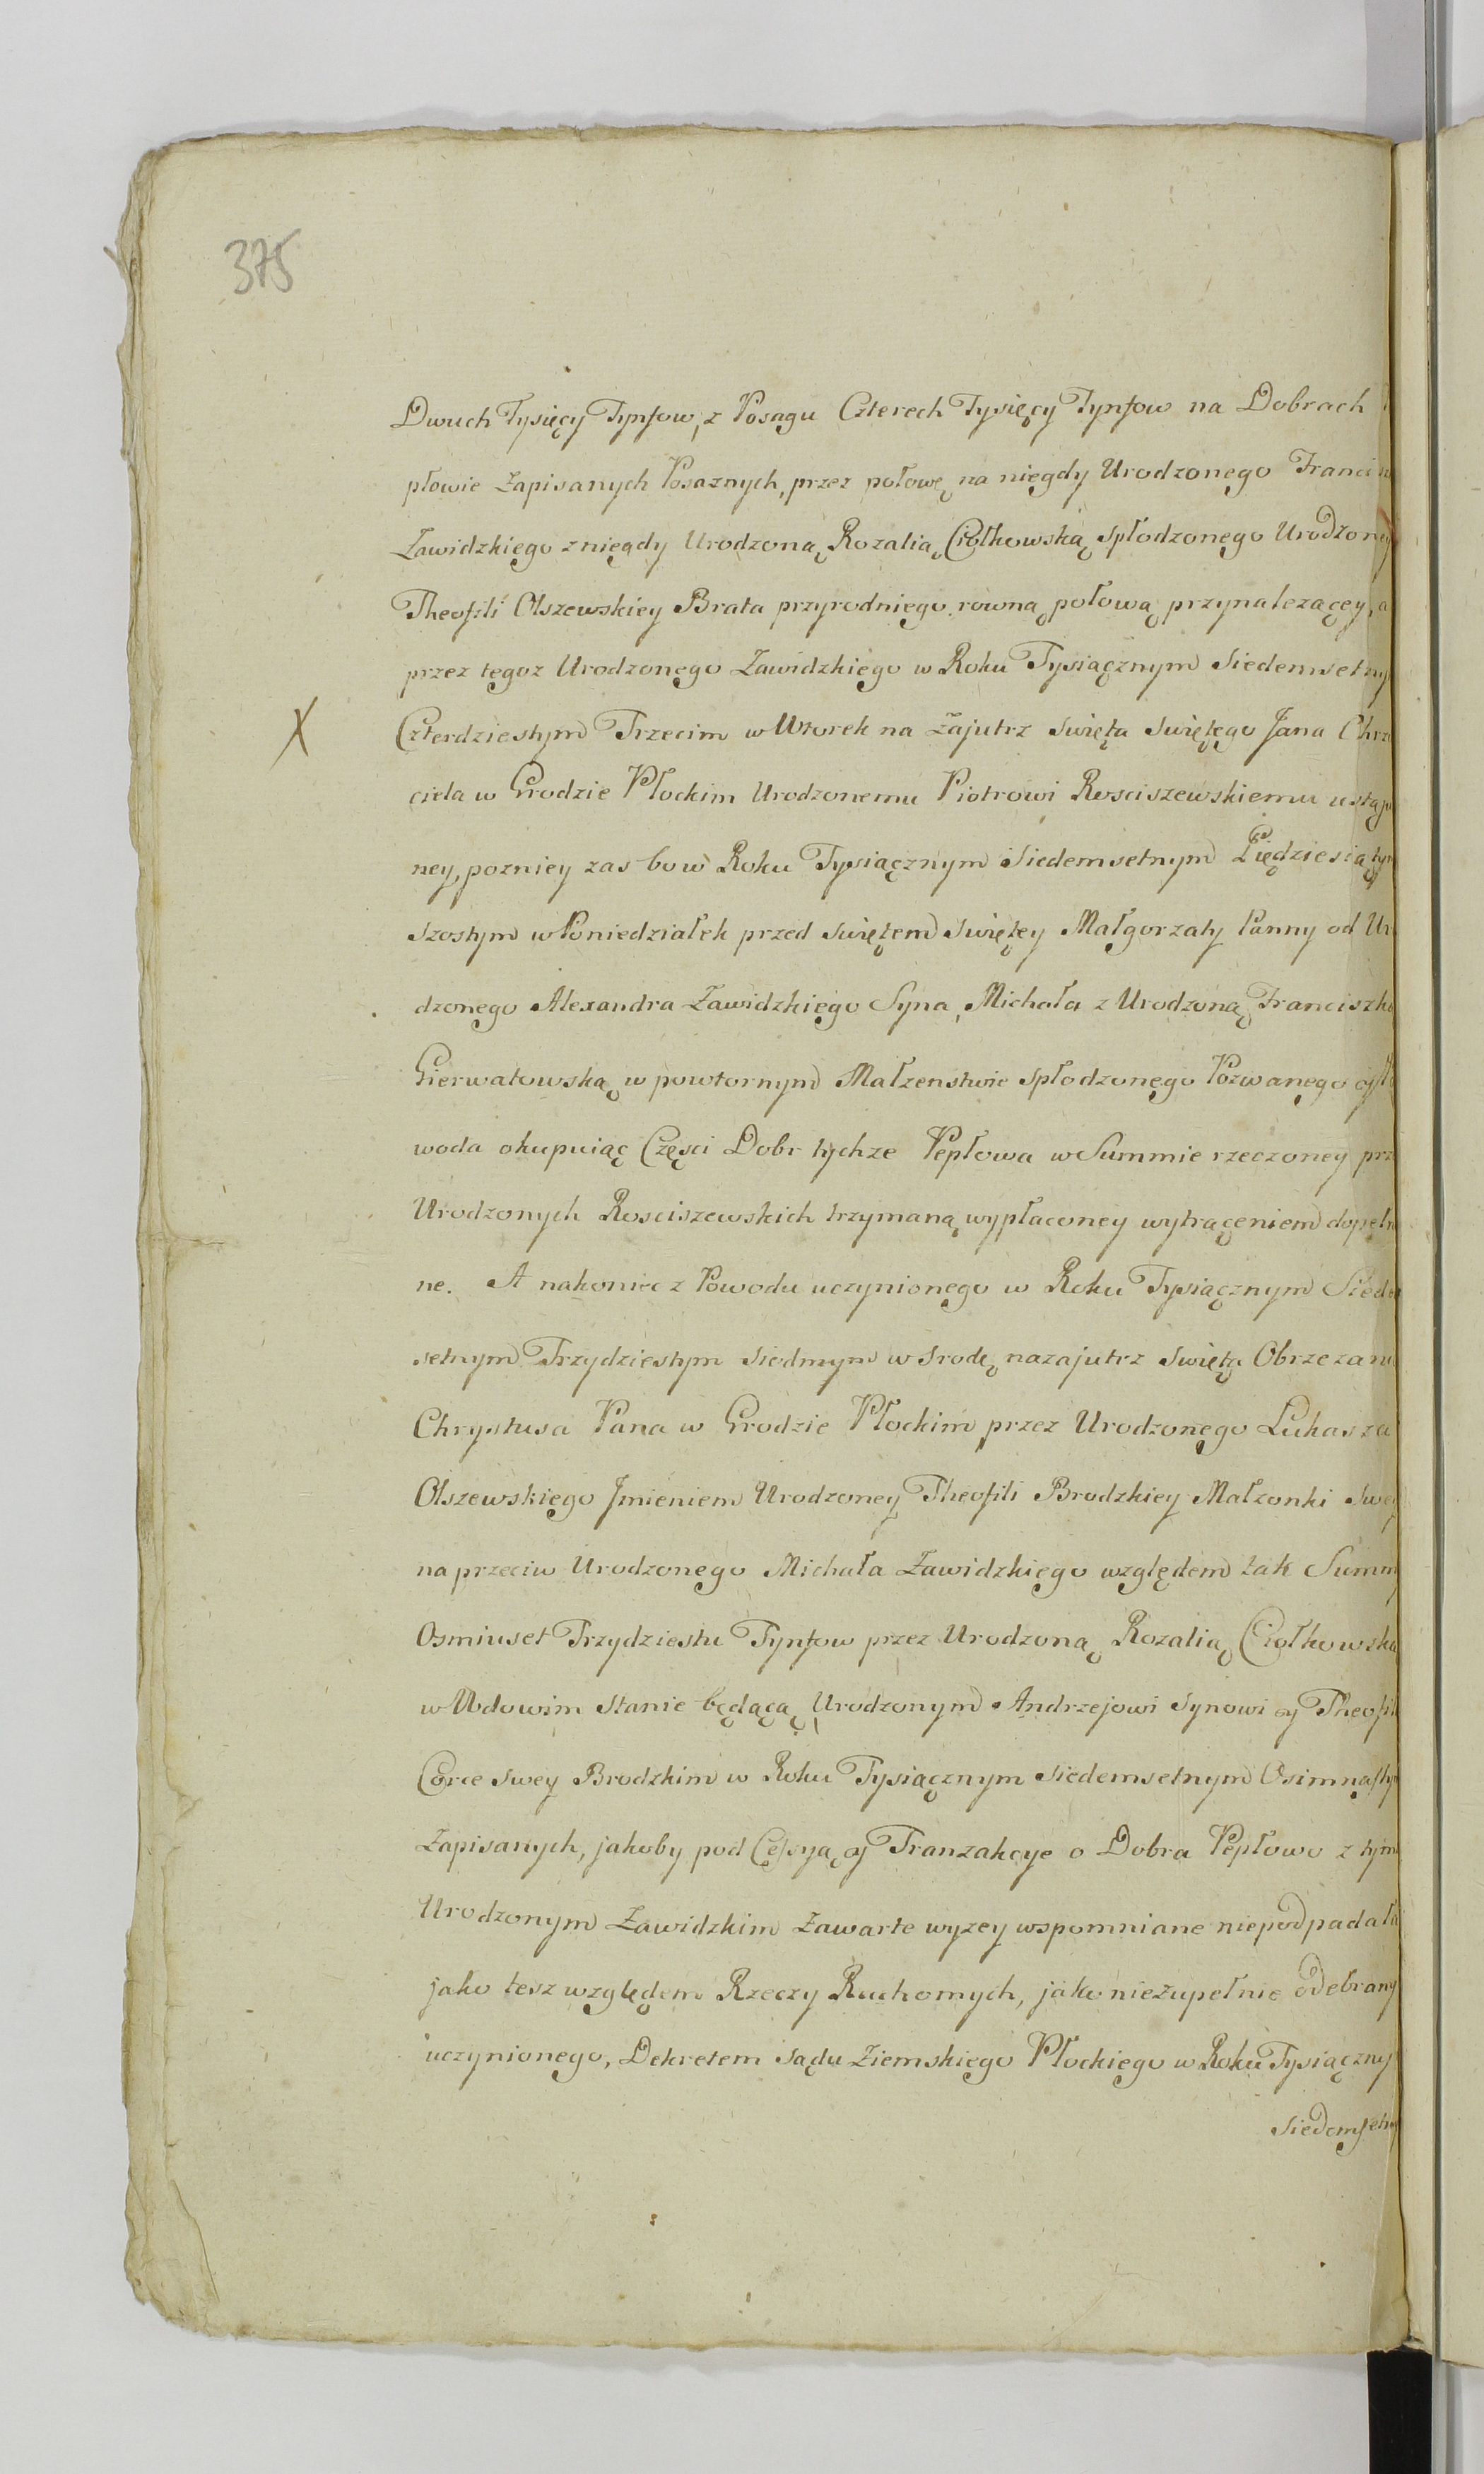 375
Dwuch Tysięcy Tynfow, z Posagu Czterech Tysięcy Tynfow na Dobrach
płowie Zapisanych Posaznych, przez połowę na niegdy Urodzonego Franci
Zawidzkiego z niegdy Urodzoną Rozalią Ciołkowską spłodzonego Urodzoney
Theofili Olszewskiey Brata przyrodniego rowną połową przynalezącey, a
przez tegoz Urodzonego Zawidzkiego w Roku Tysiącznym Siedemsetny
X
Czterdziestym Trzecim w Wtorek na Zajutrz Swięta Swiętego Jana Chrz
ciela w Grodzie Płockim Urodzonemu Piotrowi Rosciszewskiemu ustąp
ney, pozniey zas bo w Roku Tysiącznym Siedemsetnym Piędziesiątym
Szostym w Poniedziałek przed Swiętem Swiętey Małgorzaty Panny od Ur
dzonego Alexandra Zawidzkiego Syna, Michała z Urodzoną Franciszk
Gierwatowską w powtornym Małzenstwie spłodzonego Pozwanego
woda okupuiąc Części Dobr tychze Pepłowa w Summie rzeczoney prz
Urodzonych Rosciszewskich trzymaną wypłaconey wytrąceniem dopełn
ne. A nakoniec z Powodu uczynionego w Roku Tysiącznym Siede
setnym Trzydziestym Siodmym w Srodę nazajutrz Swięta Obrzezani
Chrystusa Pana w Grodzie Płockim przez Urodzonego Lukasza
Olszewskiego Jmieniem Urodzoney Theofili Brodzkiey Małzonki Swey
na przeciw Urodzonego Michała Zawidzkiego względem tak Summy
Osmiuset Trzydziestu Tynfow przez Urodzoną Rozalią Ciołkowską
w Wdowim Stanie będącą Urodzonym Andrzejowi Synowi y Theofil
Corce Swey Brodzkim w Roku Tysiącznym Siedemsetnym Osimnasty
Zapisanych, jakoby pod Cessyą y Tranzakcye o Dobra Pepłowo z tym
Urodzonym Zawidzkim Zawarte wyzey wspomniane niepodpadała
jako tesz względem Rzeczy Ruchomych, jako niezupełnie odebrany
uczynionego, Dekretem Sądu Ziemskiego Płockiego w Roku Tysiączny
Siedemsetny